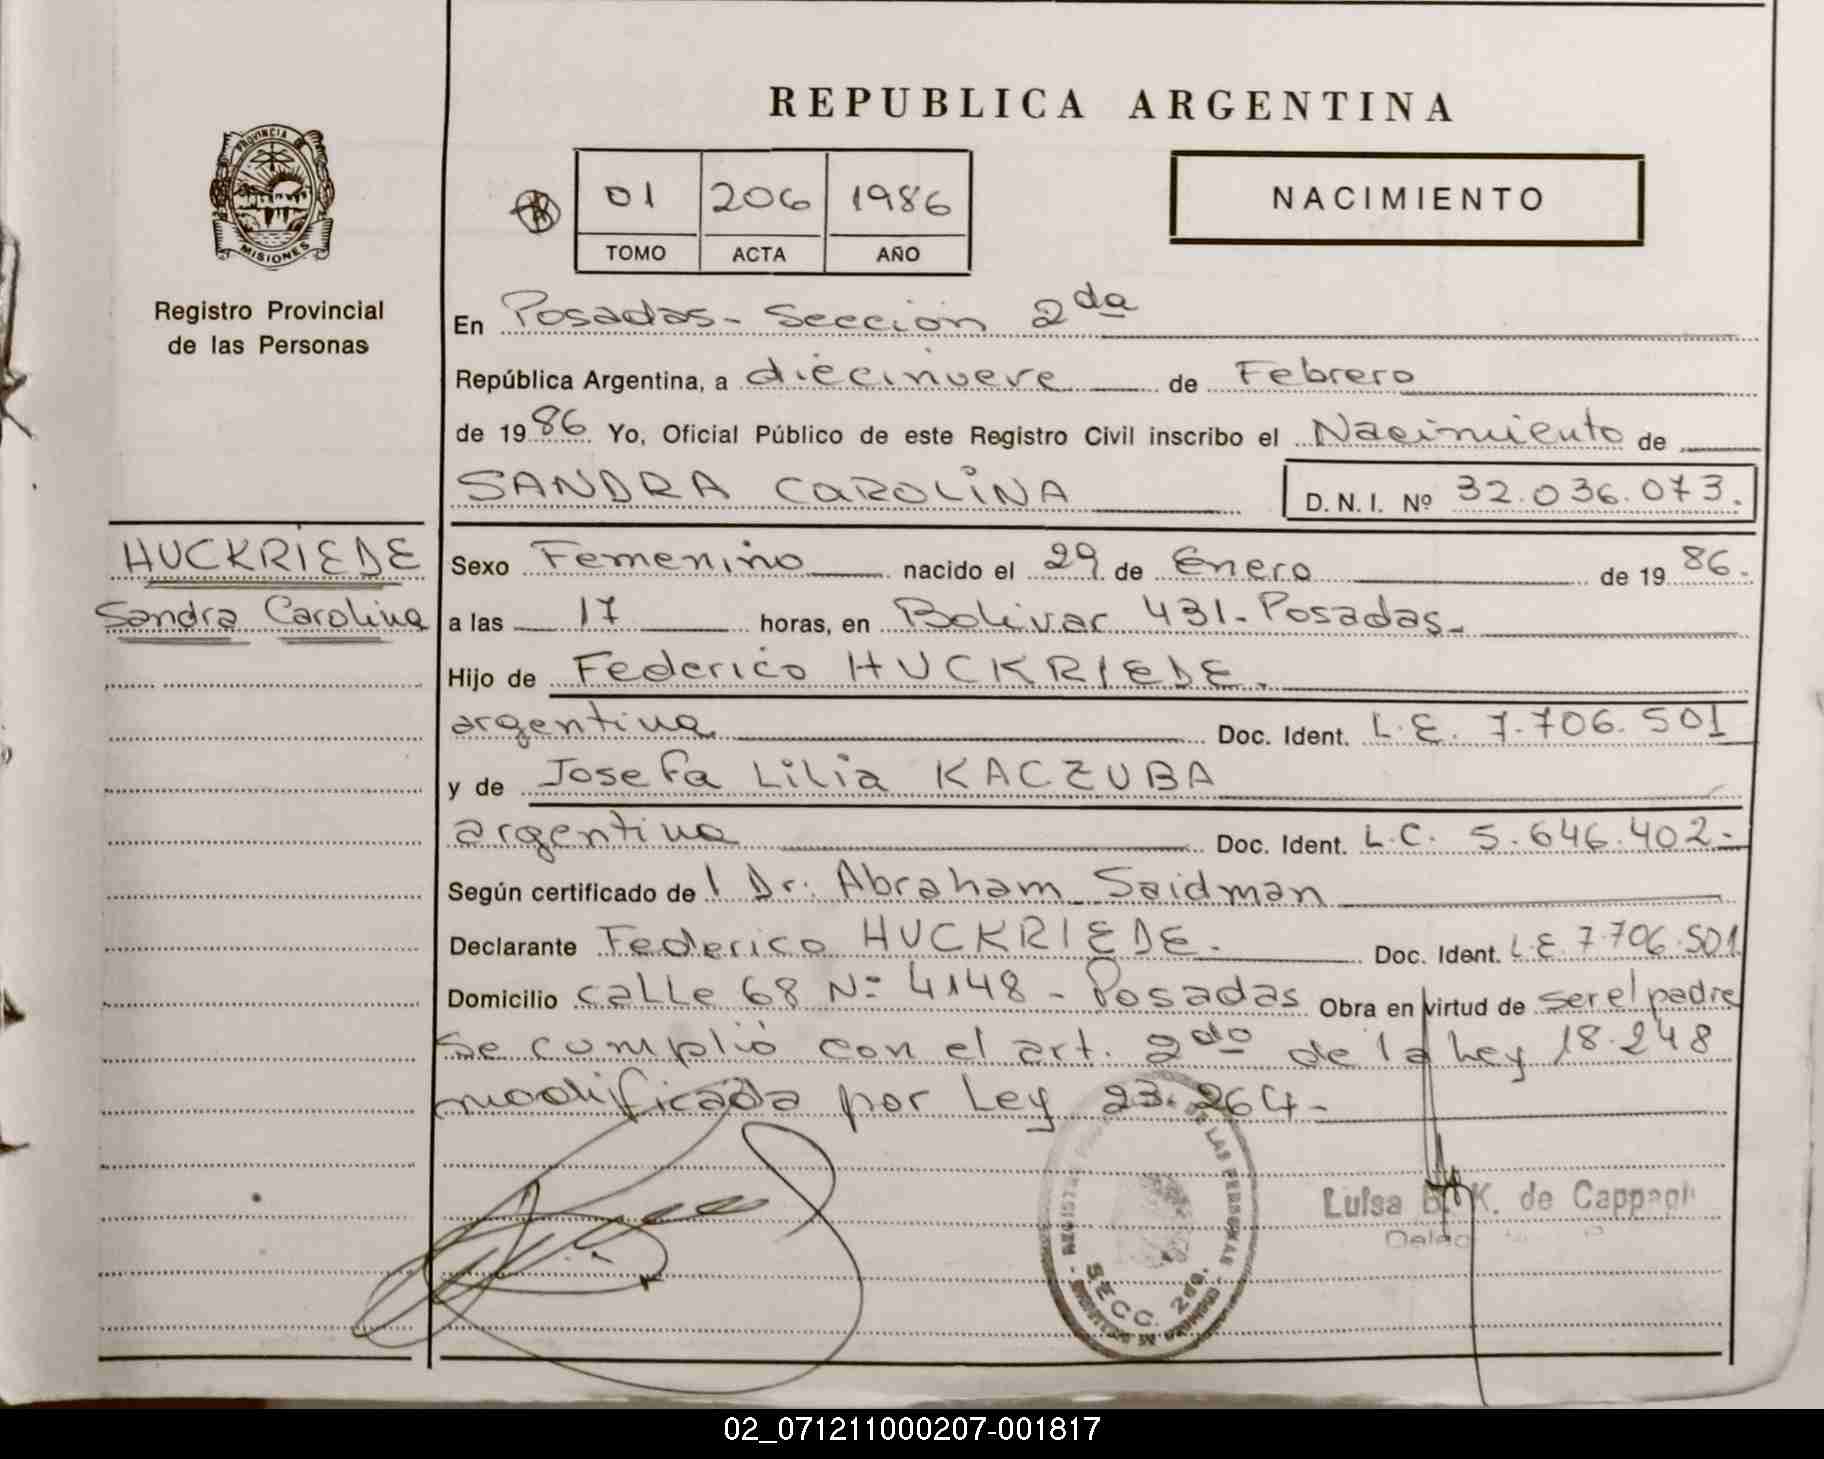 REPUBLICA ARGENTINA
PROVINCIA DE
MISIONES
Registro Provincial
de las Personas
01 206 1986
TOMO ACTA AÑO
NACIMIENTO
En Posadas - Sección 2da
República Argentina, a diecinueve de Febrero
de 1986 Yo, Oficial Público de este Registro Civil inscribo el Nacimiento de
SANDRA CAROLINA
D. N. I. Nº 32.036.073.
HUCKRIEDE
Sandra Carolina
Sexo Femenino nacido el 29 de Enero de 1986.
a las 17 horas, en Bolivar 431 - Posadas -
Hijo de Federico HUCKRIEDE.
argentina Doc. Ident. L.E. 7.706.501
y de Josefa Lilia KACZUBA
argentina Doc. Ident. L.C. 5.646.402 -
Según certificado de l Dr: Abraham Saidman
Declarante Federico HUCKRIEDE. Doc. Ident. L.E 7.706.501
Domicilio calle 68 Nº 4148 - Posadas Obra en virtud de ser el padre
Se cumplió con el art. 2do de la Ley 18.248
modificada por Ley 23.264 -
DE LAS PERSONAS
SECC. 2da.
Luisa K. de Cappagli
02_071211000207-001817